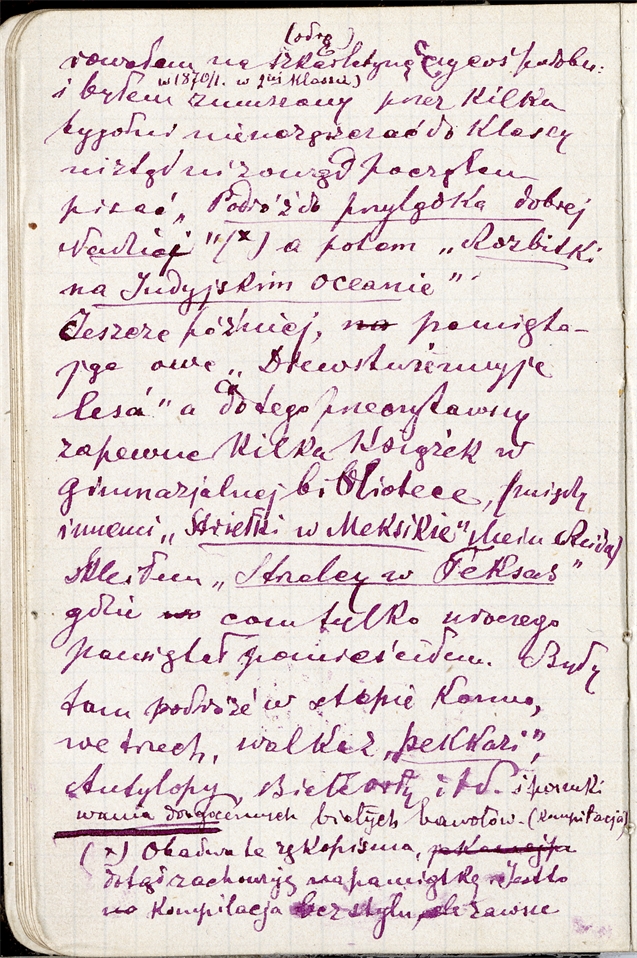 (odrę)
rowałem na szkarlatynę czy coś podobn:
w 1870/1. w 1ej klassie)
i byłem zmuszony przez kilka
tygodni nieuczęszczać do klassy
niztąd ni zowąd począłem
pisać „Podróż do przylądka dobrej
Nadziei" (x) a potem „Rozbitki
na Indyjskim oceanie"
Jeszcze później, na pamięta-
jąc owe „
lesá" a do tego przeczytawszy
zapewne kilka książek w
gimnazjalnej bibliotece, (między
innemi „Striełki w Meksikie" Mein Reida)
„Strzelcy w Teksas"
gdzie com tylko u niego
pamiętał pomieściłem. Były
tam podróże w stepie konno,
we trzech, walka z „pekkari",
Antylopy, itd. i poszuki
wania drogocennych białych bawołów. (Kompilacja)
(x) Obadwa te rękopisma,
dotąd zachowuję na pamiątkę. Jestto
no kompilacja bez stylu, ale zawsze